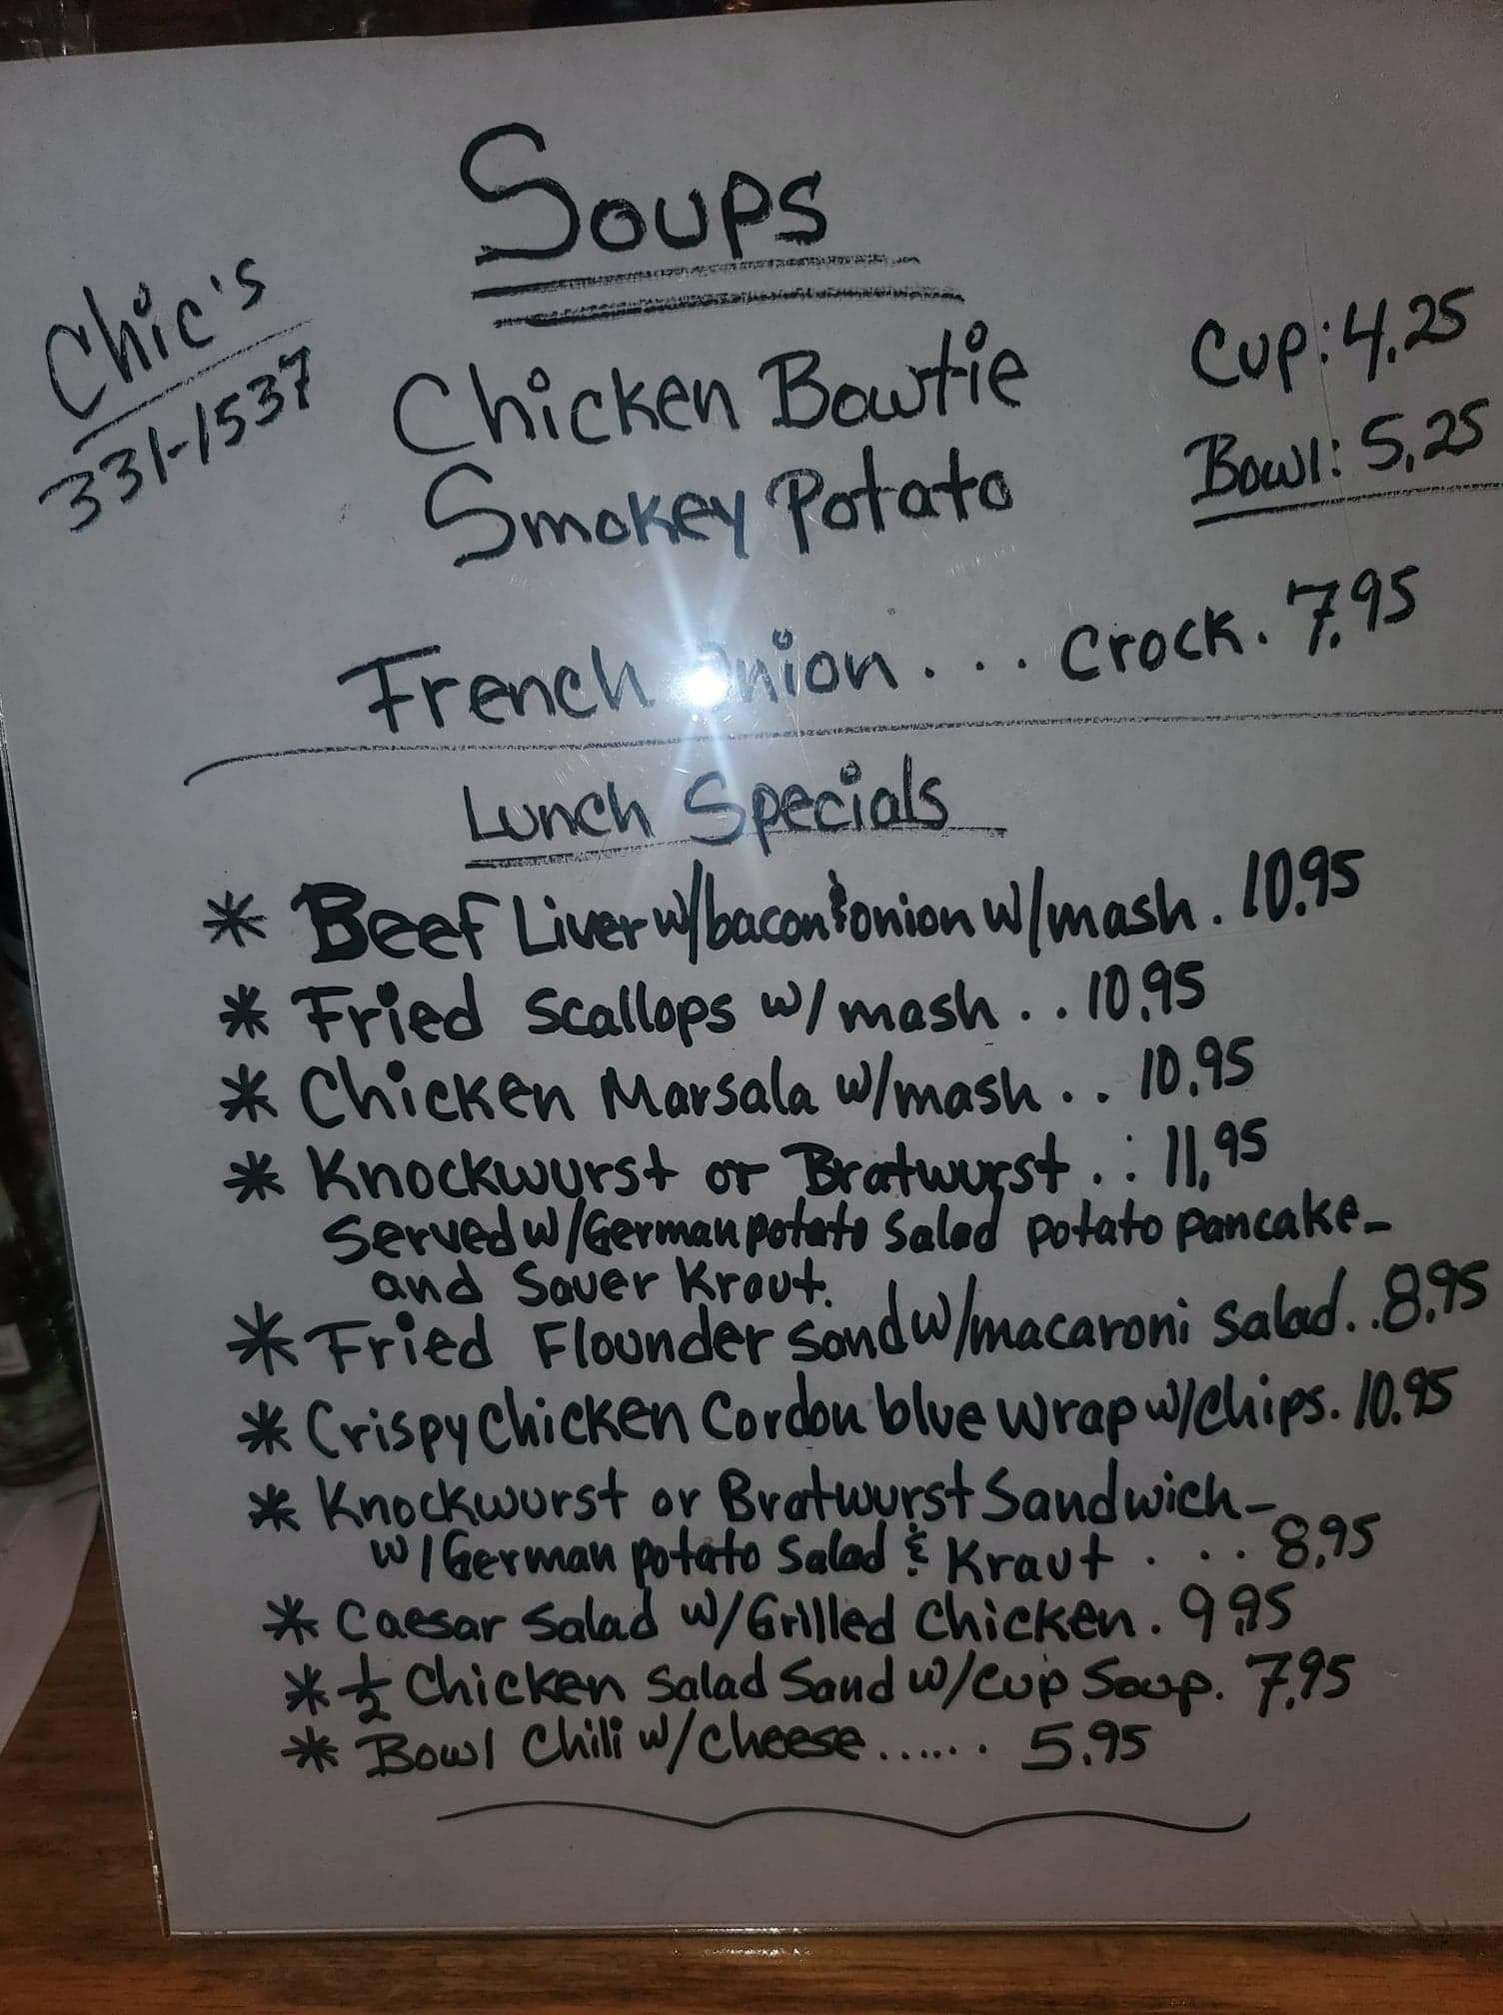 Soups
Chic's
331-1537
Chicken Bowtie
Smokey Potato
Cup: 4.25
Bowl: 5.25
French Onion . . . Crock. 7.95
Lunch Specials
* Beef Liver w/bacon & onion w/mash . 10.95
* Fried Scallops w/ mash . . 10.95
* Chicken Marsala w/mash . . 10.95
* Knockwurst or Bratwurst . : 11.95
Served w/German potato Salad potato pancake-
and Sauer Kraut.
* Fried Flounder Sand w/macaroni Salad. . 8.95
* Crispy Chicken Cordon blue Wrap w/Chips. 10.95
* Knockwurst or Bratwurst Sandwich-
w/German potato Salad & Kraut . . . 8.95
* Caesar Salad w/Grilled Chicken . 9.95
* ½ Chicken Salad Sand w/cup Soup. 7.95
* Bowl Chili w/cheese ...... 5.95